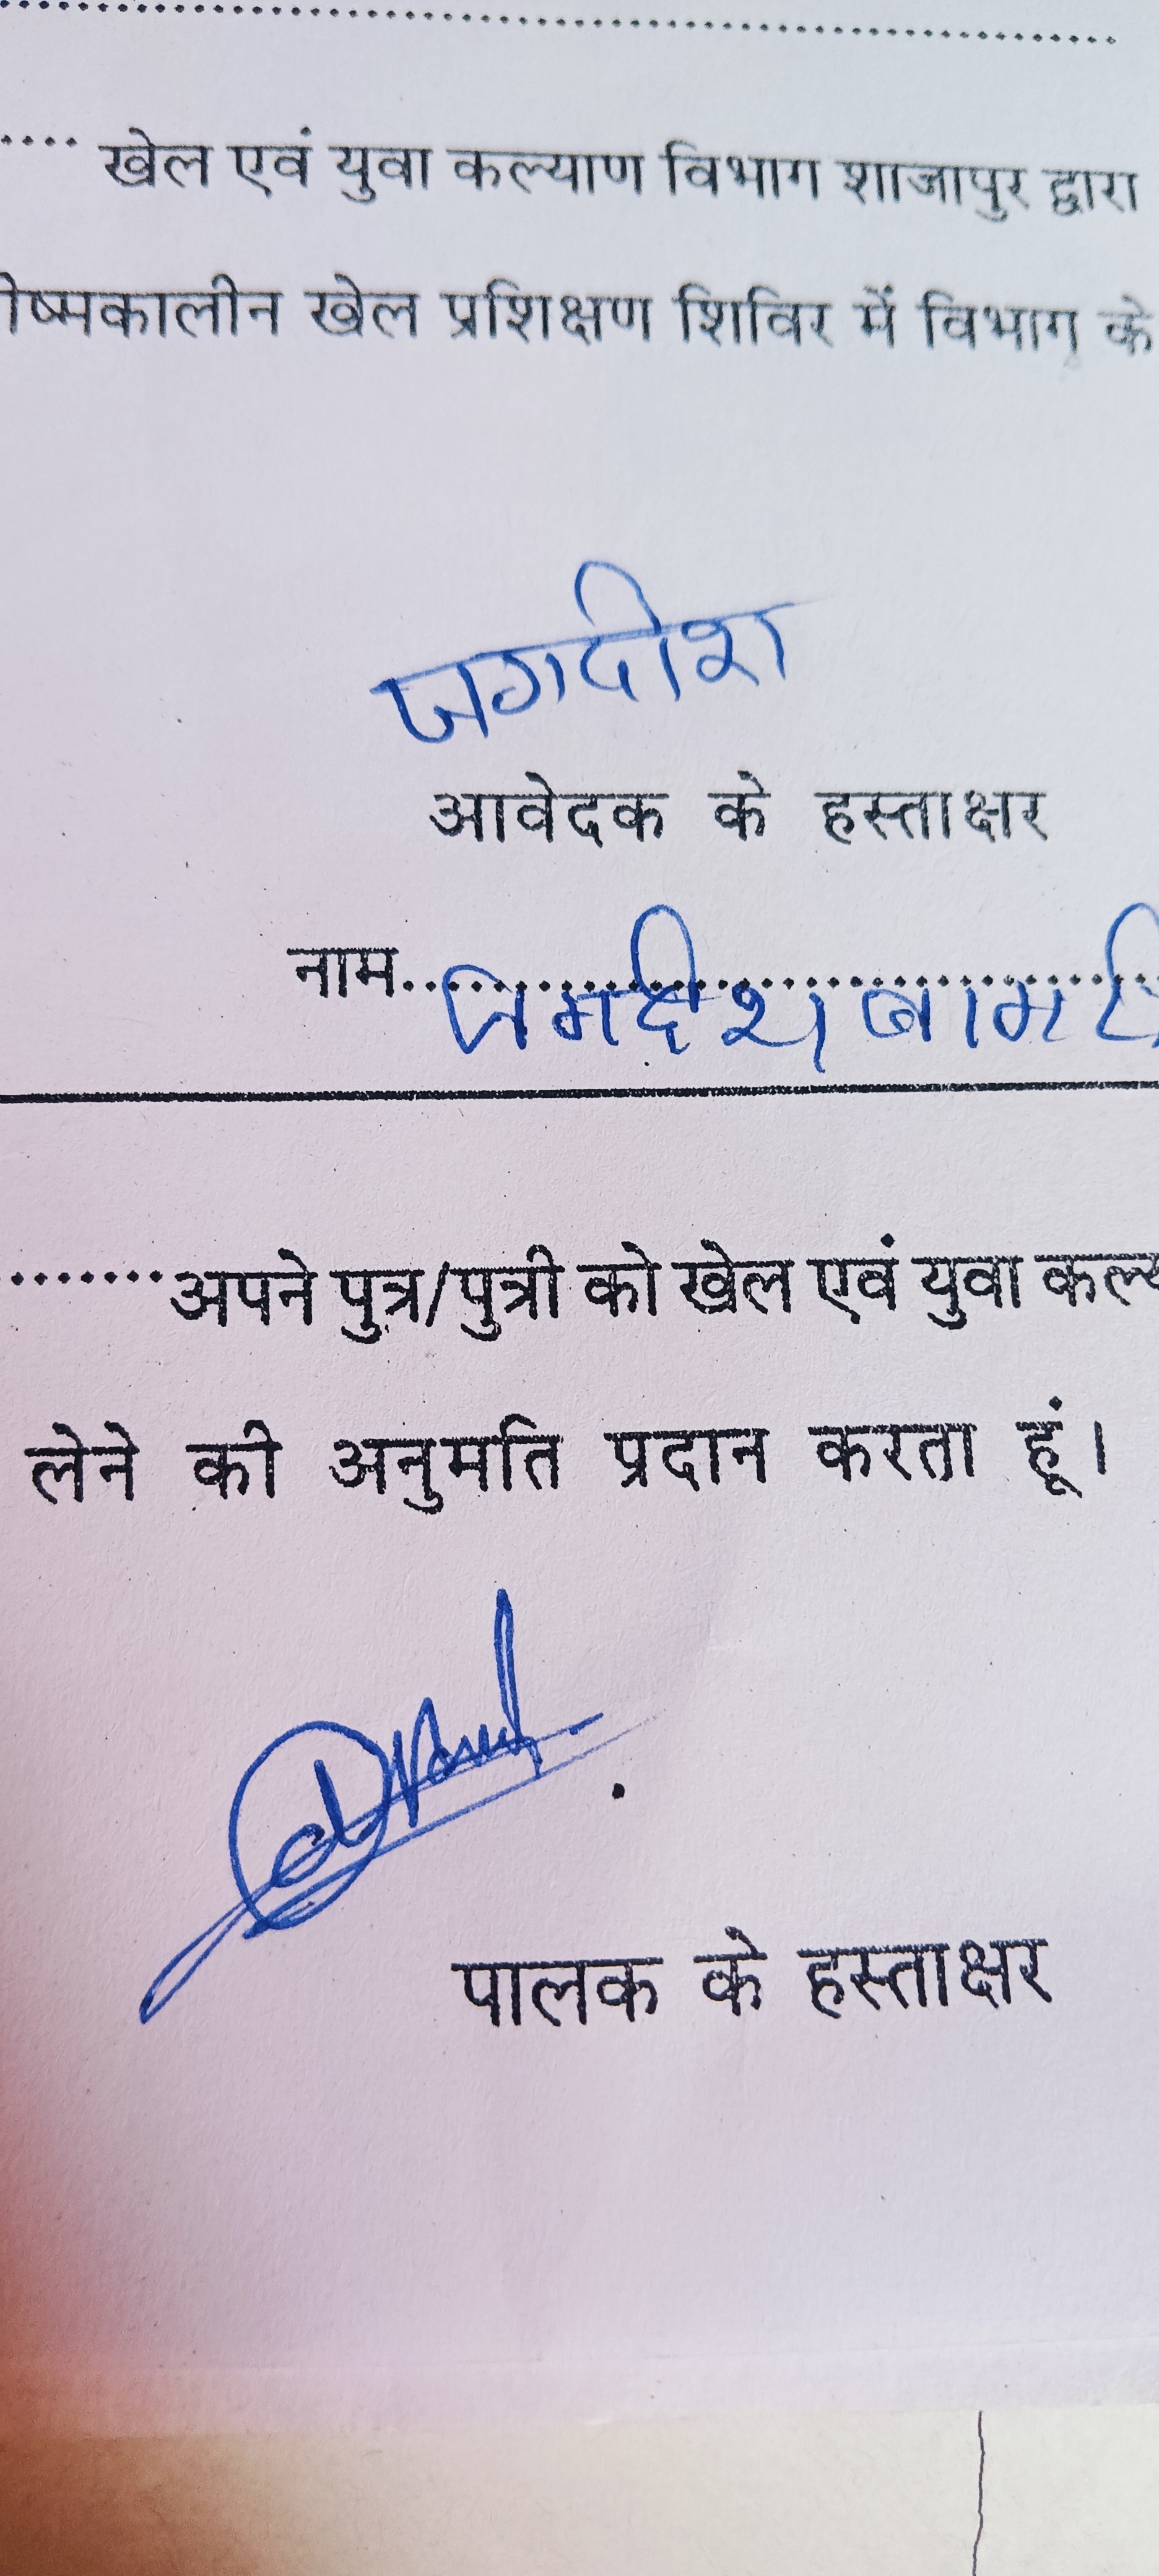 .... खेल एवं युवा कल्याण विभाग शाजापुर द्वारा
ीष्मकालीन खेल प्रशिक्षण शिविर में विभाग के
जगदीश
आवेदक के हस्ताक्षर
नाम.. जगदीश
........अपने पुत्र/पुत्री को खेल एवं युवा कल्य
लेने की अनुमति प्रदान करता हूं।
पालक के हस्ताक्षर